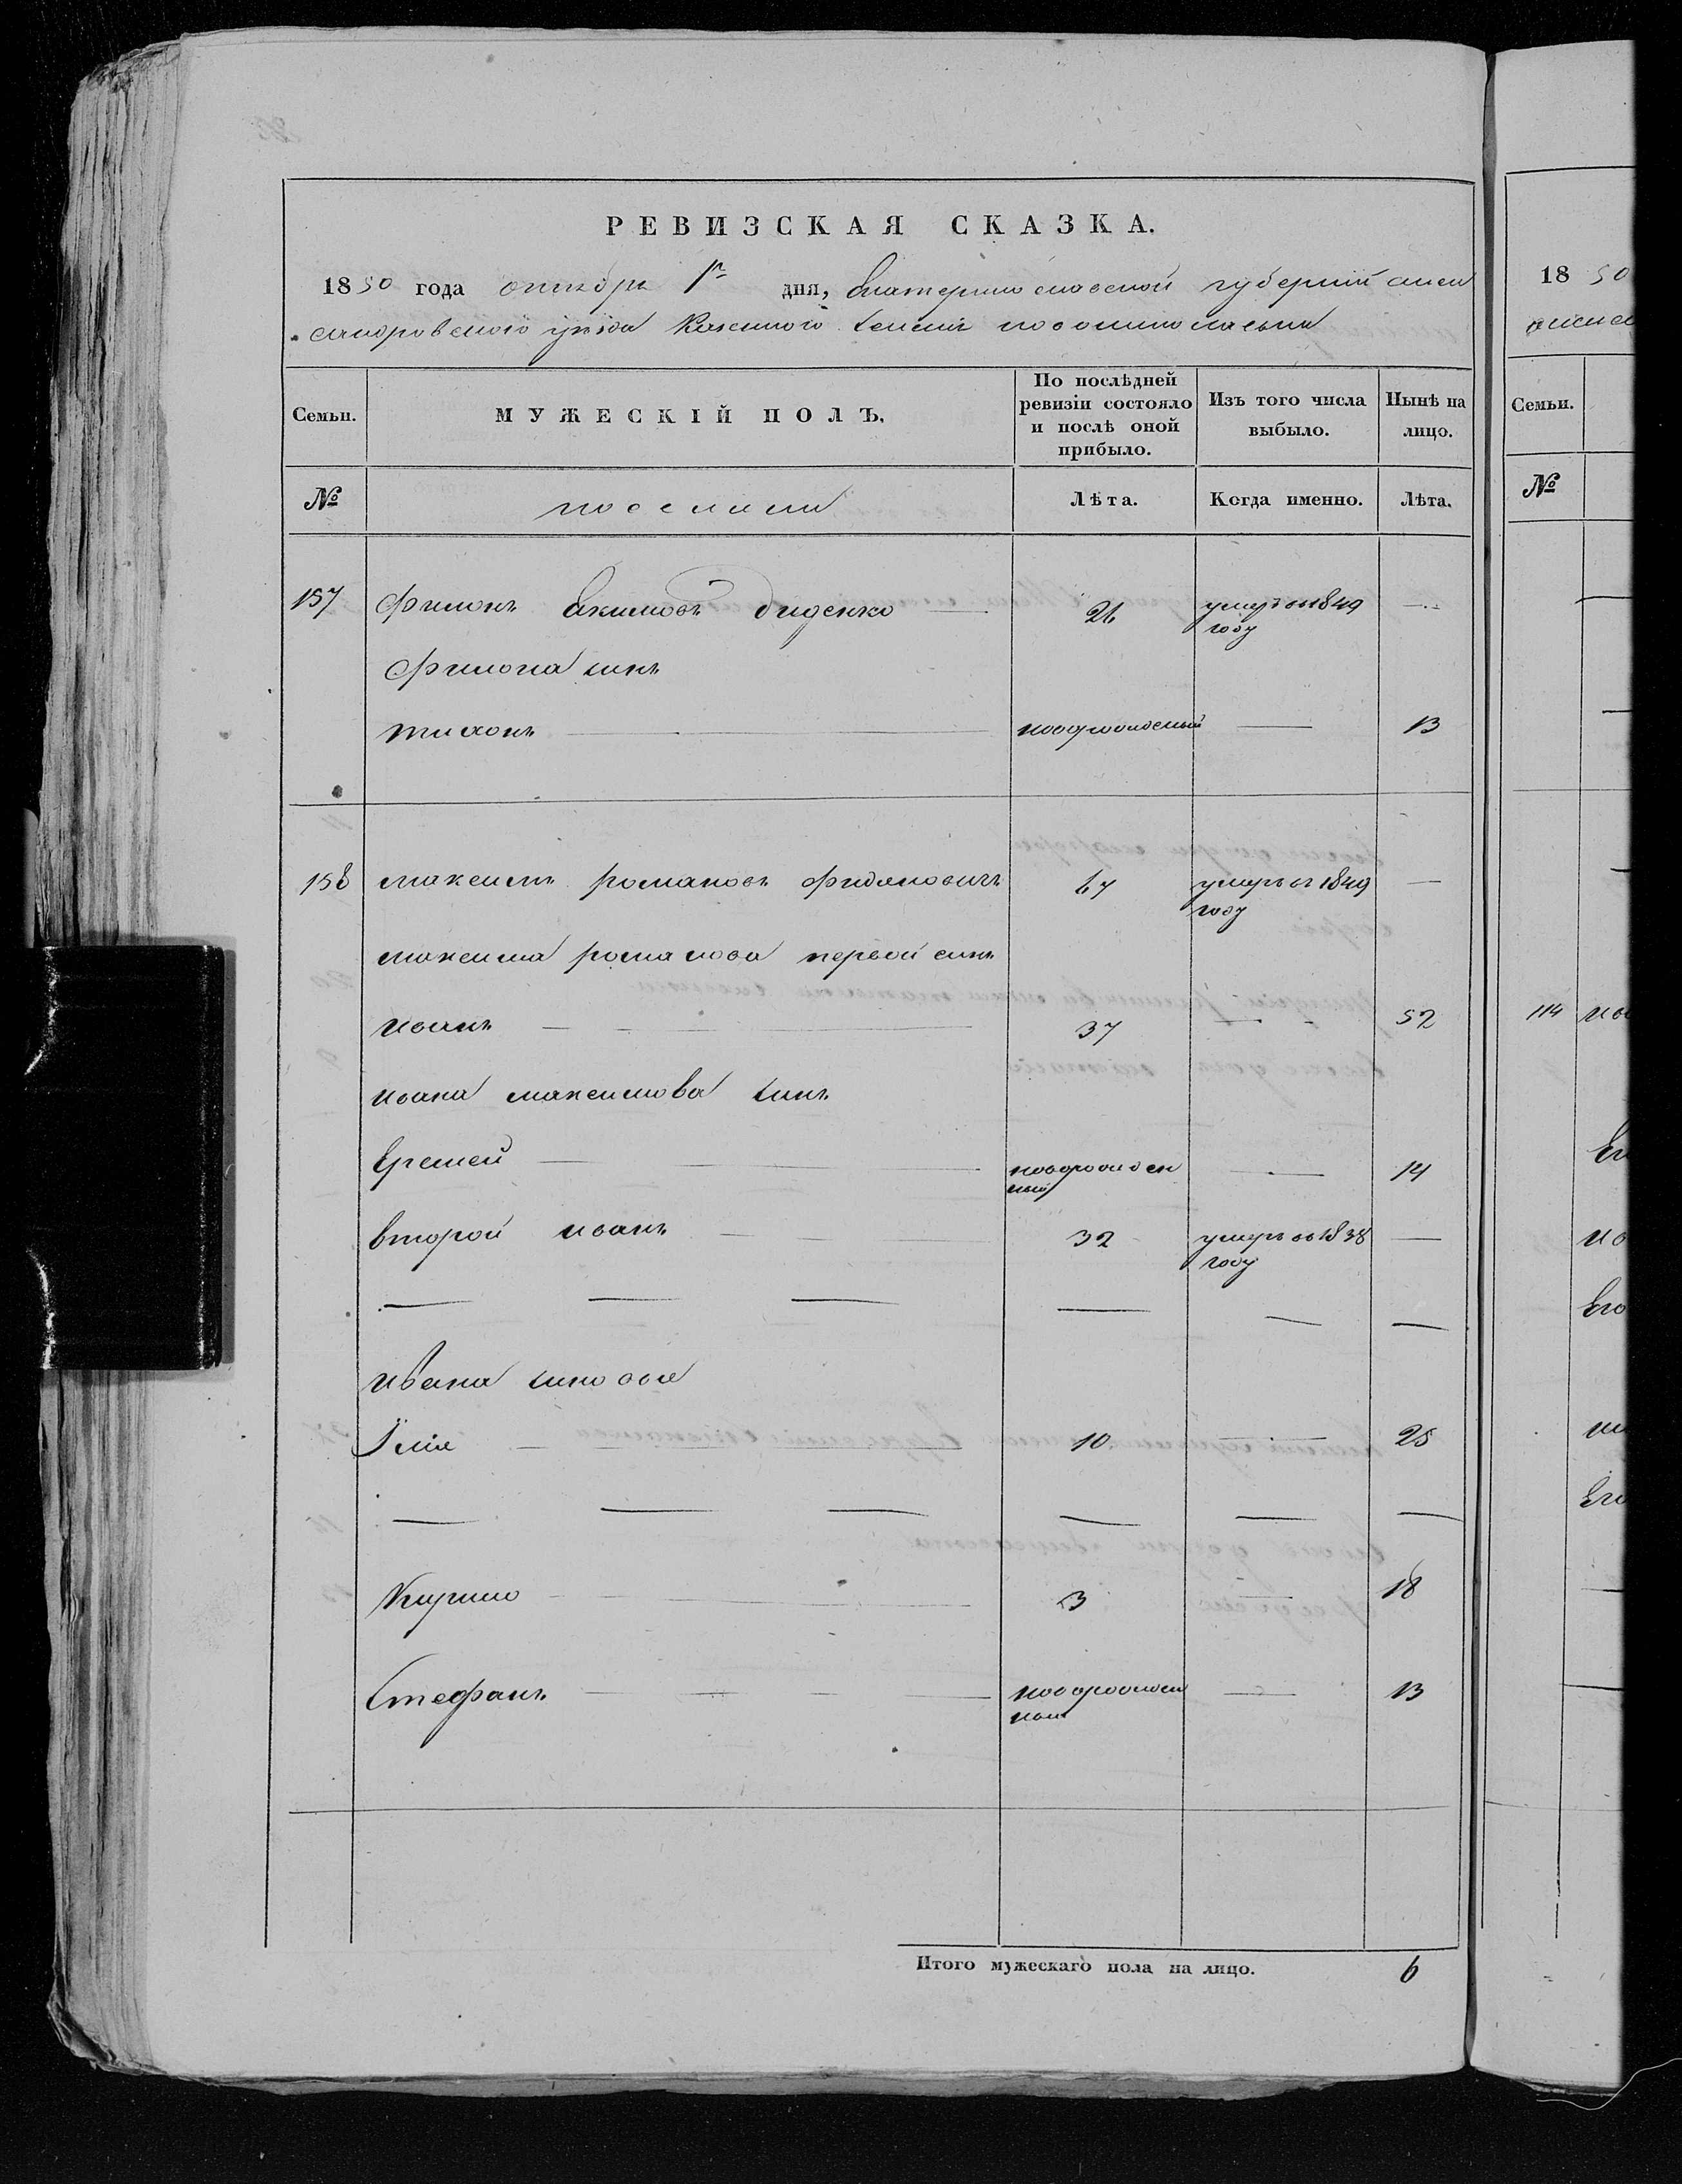 РЕВИЗСКАЯ СКАЗКА.
1850 года октября 1го дня, Екатеринославской губернии Алек
сандровского уезда Казенного селения Новониколаевки
Семьи. МУЖЕСКІЙ ПОЛЪ. По послѣдней ревизіи состояло и послѣ оной прибыло. Изъ того числа выбыло. Нынѣ на лицо.
№ Лѣта. Когда именно. Лѣта.
157 Филонъ Екимовъ Диденко 26 умеръ въ 1849 году
Филона синъ
Тихонъ новорожденый 13
158 Максимъ Романовъ 67 умеръ въ 1849 году
Максима Романова первой синъ
Иванъ 37 52
Ивана Максимова синъ
Еремей новорожден ный 14
второй Иванъ 32 умеръ въ 1838 году
Ивана синовья
10 25
Кирило 3 18
Стефанъ новорожден ный 13
Итого мужескаго пола на лицо. 6
18 50
Семьи.
№
114